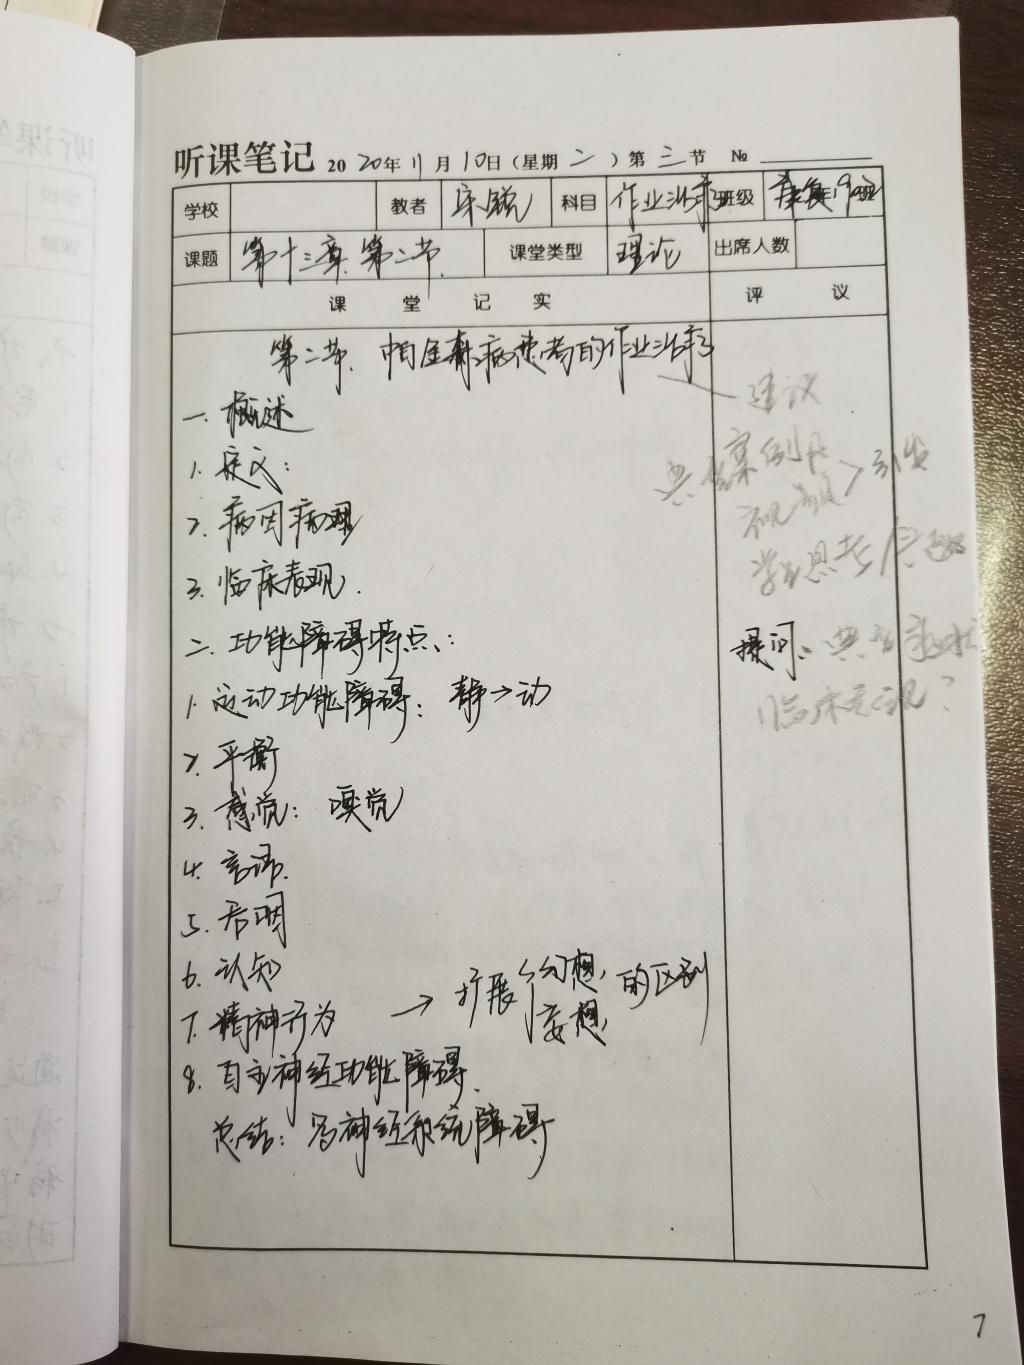 听课笔记 2020年11月10日（星期二）第三节 №
学校 教者 宋锐 科目 作业治疗 班级 康复19班
课题 第十三章 第二节. 课堂类型 理论 出席人数
课堂记实 评议
第二节. 帕金森病患者的作业治疗
建议
一. 概述
1. 定义:
案例
视频 > 引发
2. 病因病理
学生思考
3. 临床表现.
二. 功能障碍特点:
提问: 典型
临床表现?
1. 运动功能障碍: 静→动
2. 平衡
3. 感觉: 嗅觉
4. 言语.
5. 吞咽
6. 认知
7. 精神行为 → 扩展{幻想, 妄想, 的区别
8. 自主神经功能障碍.
总结: 神经系统障碍
7